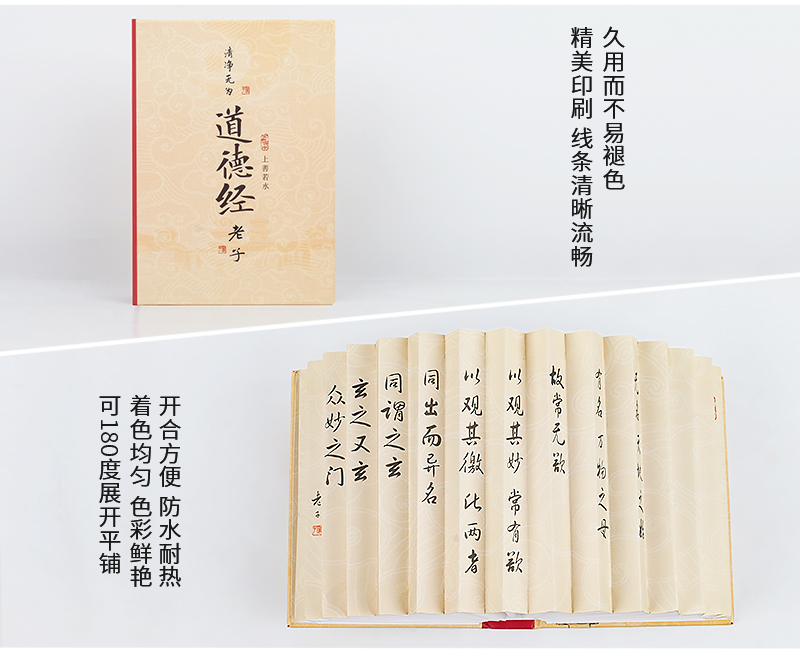 清净无为
道德经
上善若水
老子
久用而不易褪色
精美印刷 线条清晰流畅
开合方便 防水耐热
着色均匀 色彩鲜艳
可180度展开平铺
有名 万物之母
故常无欲
以观其妙 常有欲
以观其徼 此两者
同出而异名
同谓之玄
玄之又玄
众妙之门
老子